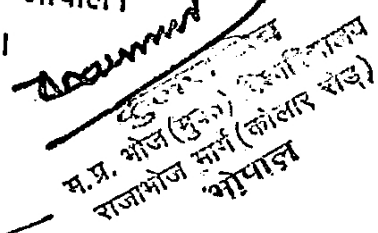 भोपाल।
म.प्र. भोज (मुक्त) विश्वविद्यालय
राजाभोज मार्ग (कोलार रोड)
भोपाल